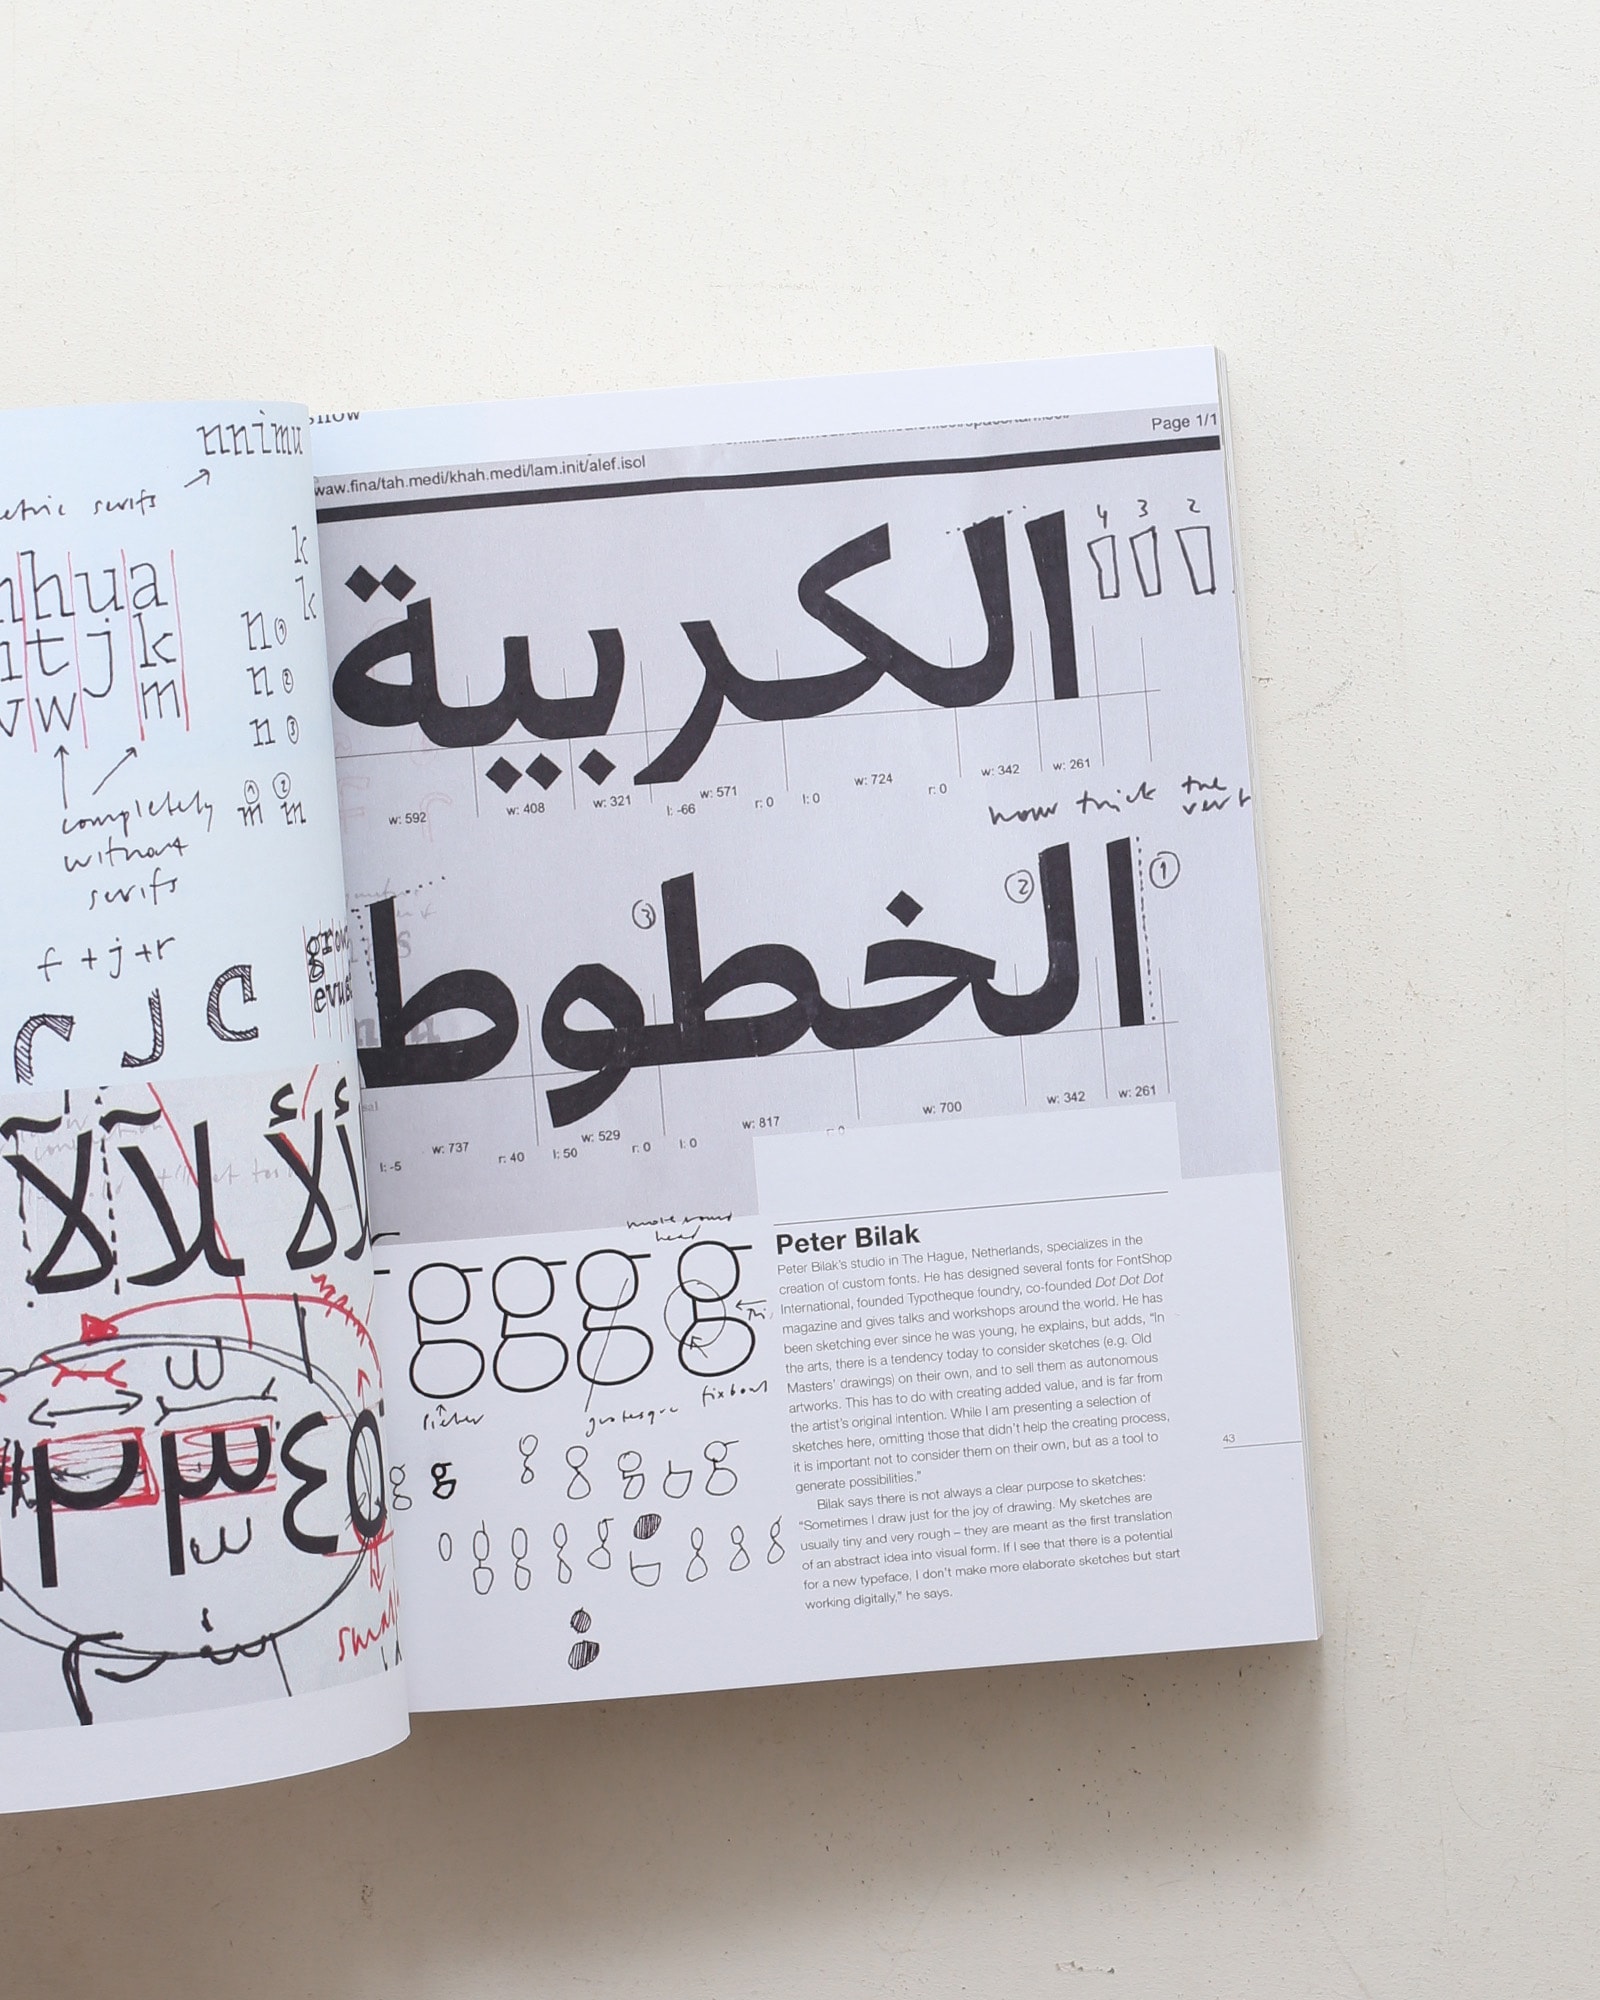 nnimu
serifs
hua
tjk
w m
k
k
n 1
n 2
n 3
completely
without
serifs
1 2
m m
f + j + r
r J C
لآ لآ لأ
show
waw.fina/tah.medi/khah.medi/lam.init/alef.isol
Page 1/1
4 3 2
الكربية
w: 592 w: 408 w: 321 l: -66 w: 571 r: 0 l: 0 w: 724 r: 0 w: 342 w: 261
how thick the
3 2 1
الخطوط
l: -5 w: 737 r: 40 l: 50 w: 529 r: 0 l: 0 w: 817 r: 0 w: 700 w: 342 w: 261
more round
head
g g g g
grotesque
fix bowl
Peter Bilak
Peter Bilak's studio in The Hague, Netherlands, specializes in the
creation of custom fonts. He has designed several fonts for FontShop
International, founded Typotheque foundry, co-founded Dot Dot Dot
magazine and gives talks and workshops around the world. He has
been sketching ever since he was young, he explains, but adds, "In
the arts, there is a tendency today to consider sketches (e.g. Old
Masters' drawings) on their own, and to sell them as autonomous
artworks. This has to do with creating added value, and is far from
the artist's original intention. While I am presenting a selection of
sketches here, omitting those that didn't help the creating process,
it is important not to consider them on their own, but as a tool to
generate possibilities."
Bilak says there is not always a clear purpose to sketches:
"Sometimes I draw just for the joy of drawing. My sketches are
usually tiny and very rough – they are meant as the first translation
of an abstract idea into visual form. If I see that there is a potential
for a new typeface, I don't make more elaborate sketches but start
working digitally," he says.
43